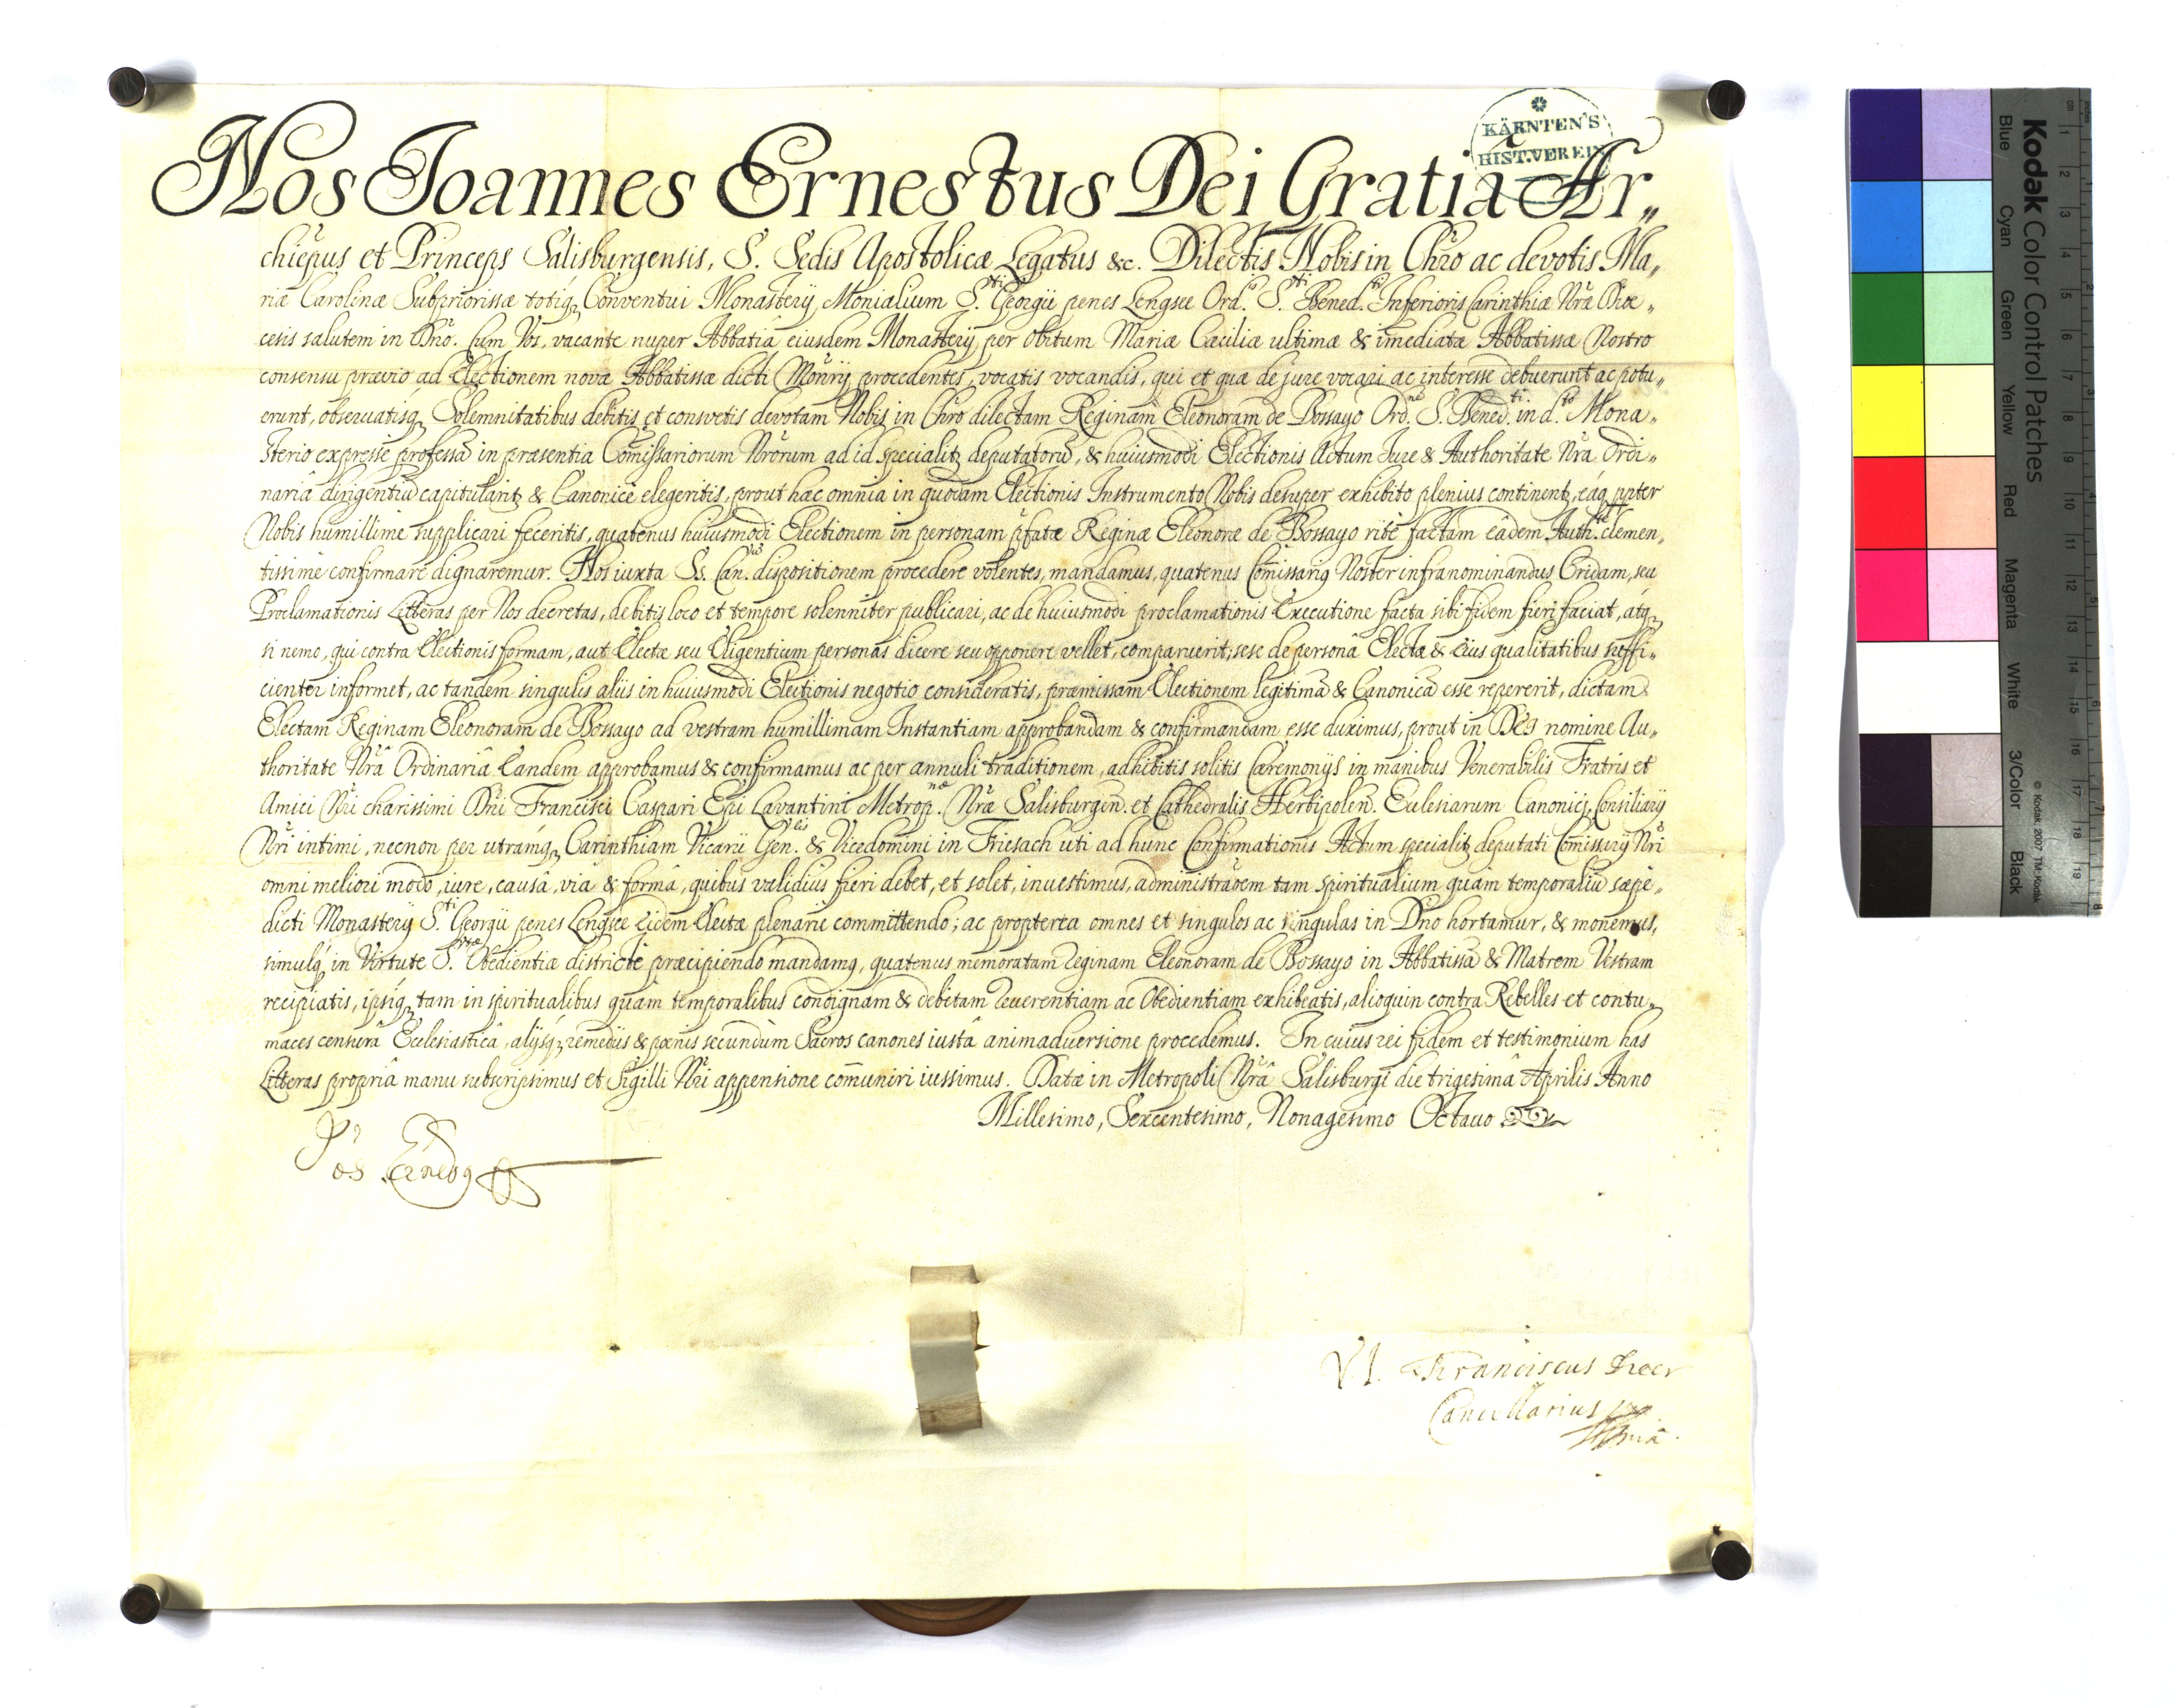 KÄRNTEN'S
HIST. VEREIN
Nos Joannes Ernestus Dei Gratia Ar„
chiepus et Princeps Salisburgensis, S. Sedis Apostolicæ Legatus &c. Dilectis Nobis in Chro ac devotis Ma„
riæ Carolinæ Subpriorissæ totiq Conventui Monastery Monialium S.ti Georgii penes Lengsee Ord.s S.ti Bened.ti Inferioris Carinthiæ Nræ Diœ„
cesis salutem in Dno. Cum Vos, vacante nuper Abbatiâ eiusdem Monastery per obitum Mariæ Cæciliæ ultimæ & imediatæ Abbatissæ Nostro
consensu prævio ad Electionem novæ Abbatissæ dicti Monrij procedentes, vocatis vocandis, qui et quæ de jure vocari ac interesse debuerunt ac potu„
erunt, observatisq Solemnitatibus debitis et consvetis devotam Nobis in Chro dilectam Reginam Eleonoram de Bossayo Ord.ne S. Bened.ti in d.to Mona„
sterio expresse professã in præsentia Comissariorum Nrorum ad id specialitr deputatorũ, & huiusmodi Electionis Actum Jure & Authoritate Nrâ Ordi„
nariâ dirigentiũ capitularitr & Canonicè elegeritis, prout hæc omnia in quodam Electionis Instrumento Nobis desuper exhibito plenius continentr, eaq ppter
Nobis humillime supplicari feceritis, quatenus huiusmodi Electionem in personam pfatæ Reginæ Eleonoræ de Bossayo ritè factam eâdem Auth.te clemen„
tissimè confirmare dignaremur. Nos iuxta Ss. Can.um dispositionem procedere volentes, mandamus, quatenus Comissarig Noster infranominandus Cridam, seu
Proclamationis Litteras per Nos decretas, debitis loco et tempore solenniter publicari, ac de huiusmodi proclamationis Executione facta sibi fidem fieri faciat, atq
si nemo, qui contra Electionis formam, aut Electæ seu Eligentium personas dicere seu opponere vellet, comparuerit, sese de personâ Electæ & Eius qualitatibus suffi„
cienter informet, ac tandem singulis aliis in huiusmodi Electionis negotio consideratis, præmissam Electionem legitimã & Canonicã esse repererit, dictam
Electam Reginam Eleonoram de Bossayo ad vestram humillimam Instantiam approbandam & confirmandam esse duximus, prout in Dei nomine Au„
thoritate Nrâ Ordinariâ Eandem approbamus & confirmamus ac per annuli traditionem, adhibitis solitis Cæremonijs in manibus Venerabilis Fratris et
Amici Nri charissimi Dni Francisci Caspari Epi Lavantini Metrop.næ Nræ Salisburgen. et Cathedralis Herbipolen. Ecclesiarum Canonici, Consiliarij
Nri intimi, necnon per utramq Carinthiam Vicarii Gen.lis & Vicedomini in Friesach uti ad hunc Confirmationis Actum specialitr deputati Comissrij Nri
omni meliori modo, iure, causâ, via & formâ, quibus validius fieri debet, et solet, inuestimus, administraoem tam spiritualium quam temporaliũ sæpe„
dicti Monastery S.ti Georgii penes Lengsee Eidem Electæ plenariè committendo; ac propterea omnes et singulos ac singulas in Dno hortamur, & monemus,
simulq in Virtute S.tæ Obedientiæ districtè præcipiendo mandamg, quatenus memoratam Reginam Eleonoram de Bossayo in Abbatissã & Matrem Vestram
recipiatis, ipsiq tam in spiritualibus quam temporalibus condignam & debitam Reuerentiam ac Obedientiam exhibeatis, alioquin contra Rebelles et contu„
maces censurâ Ecclesiasticâ, alijsq remediis & pœnis secundum Sacros canones iustâ animaduersione procedemus. In cuius rei fidem et testimonium has
Litteras propriâ manu subscripsimus et Sigilli Nri appensione comuniri iussimus. Datæ in Metropoli Nrâ Salisburgi die trigesimâ Aprilis Anno
Millesimo, Sexcentesimo, Nonagesimo Octauo
Franciscus
Cancellarius
Kodak Color Control Patches
Blue Cyan Green Yellow Red Magenta White 3/Color Black
© Kodak, 2007 TM: Kodak
cm 1 2 3 4 5 6 7 8 9 10 11 12 13 14 15 16 17 18 19
1 2 3 4 5 6 7 8